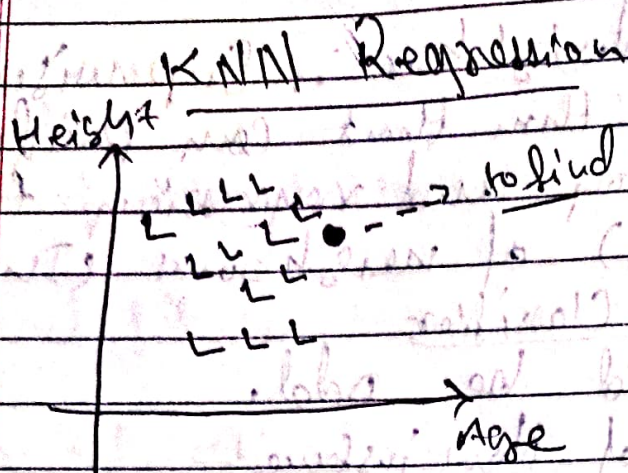 KNN Regression
Height
to find
Age